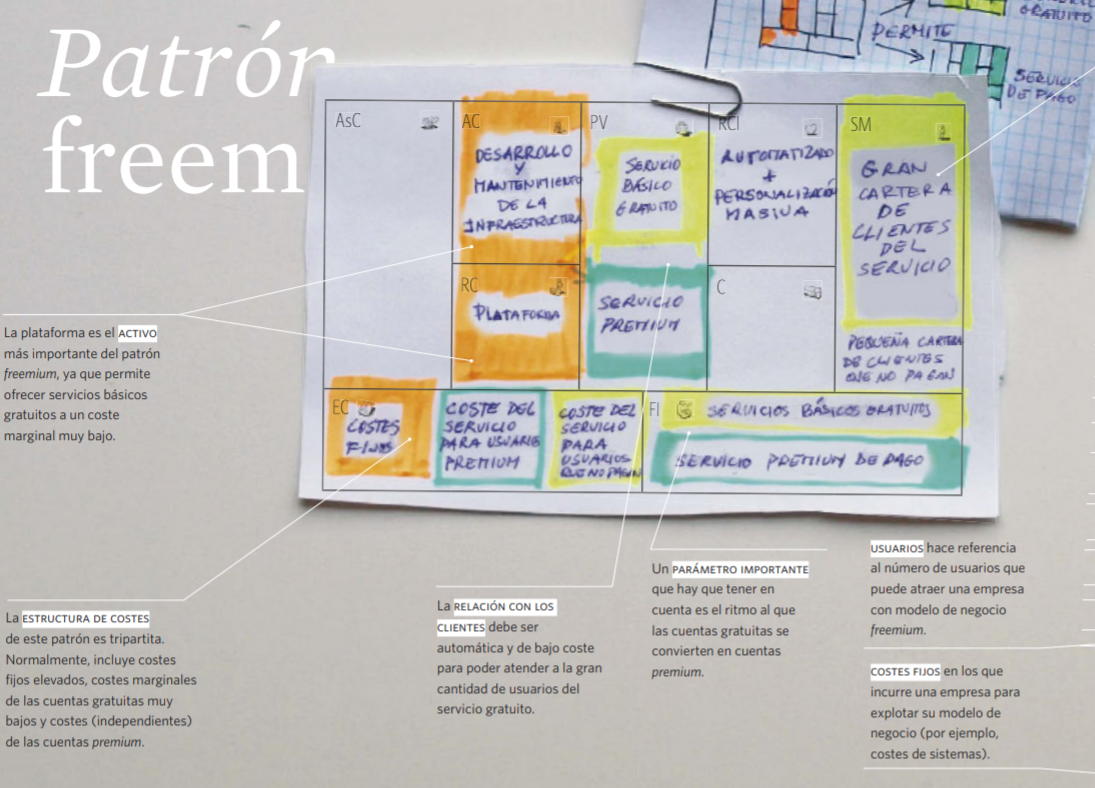 Patrón
freem
PERMITE
GRATUITO
SERVICIO
DE PAGO
AsC
AC
PV
RCl
SM
DESARROLLO
Y
MANTENIMIENTO
DE LA
INFRAESTRUCTURA
SERVICIO
BÁSICO
GRATUITO
AUTOMATIZADO
+
PERSONALIZACIÓN
MASIVA
GRAN
CARTERA
DE
CLIENTES
DEL
SERVICIO
RC
PLATAFORMA
SERVICIO
PREMIUM
C
PEQUEÑA CARTERA
DE CLIENTES
QUE NO PAGAN
EC
COSTES
FIJOS
COSTE DEL
SERVICIO
PARA USUARIOS
PREMIUM
COSTE DEL
SERVICIO
PARA
USUARIOS
QUE NO PAGAN
FI
SERVICIOS BÁSICOS GRATUITOS
SERVICIO PREMIUM DE PAGO
La plataforma es el ACTIVO
más importante del patrón
freemium, ya que permite
ofrecer servicios básicos
gratuitos a un coste
marginal muy bajo.
La ESTRUCTURA DE COSTES
de este patrón es tripartita.
Normalmente, incluye costes
fijos elevados, costes marginales
de las cuentas gratuitas muy
bajos y costes (independientes)
de las cuentas premium.
La RELACIÓN CON LOS
CLIENTES debe ser
automática y de bajo coste
para poder atender a la gran
cantidad de usuarios del
servicio gratuito.
Un PARÁMETRO IMPORTANTE
que hay que tener en
cuenta es el ritmo al que
las cuentas gratuitas se
convierten en cuentas
premium.
USUARIOS hace referencia
al número de usuarios que
puede atraer una empresa
con modelo de negocio
freemium.
COSTES FIJOS en los que
incurre una empresa para
explotar su modelo de
negocio (por ejemplo,
costes de sistemas).